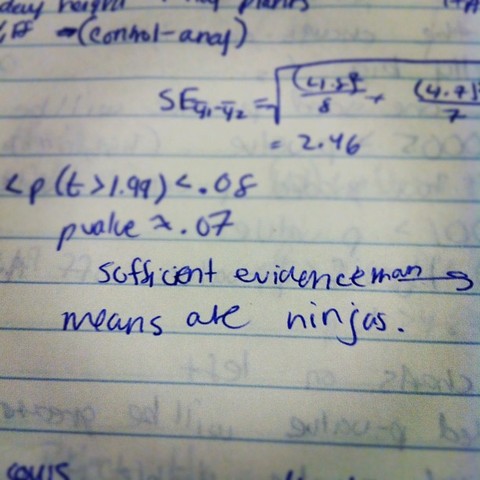 day height
(control-anaf)
SEȳ1-ȳ2 = √(4.8)²/8 + (4.7)²/7
= 2.46
< p(t>1.99) < .08
pvalue ≈ .07
sufficient evidence man →
means are ninjas.